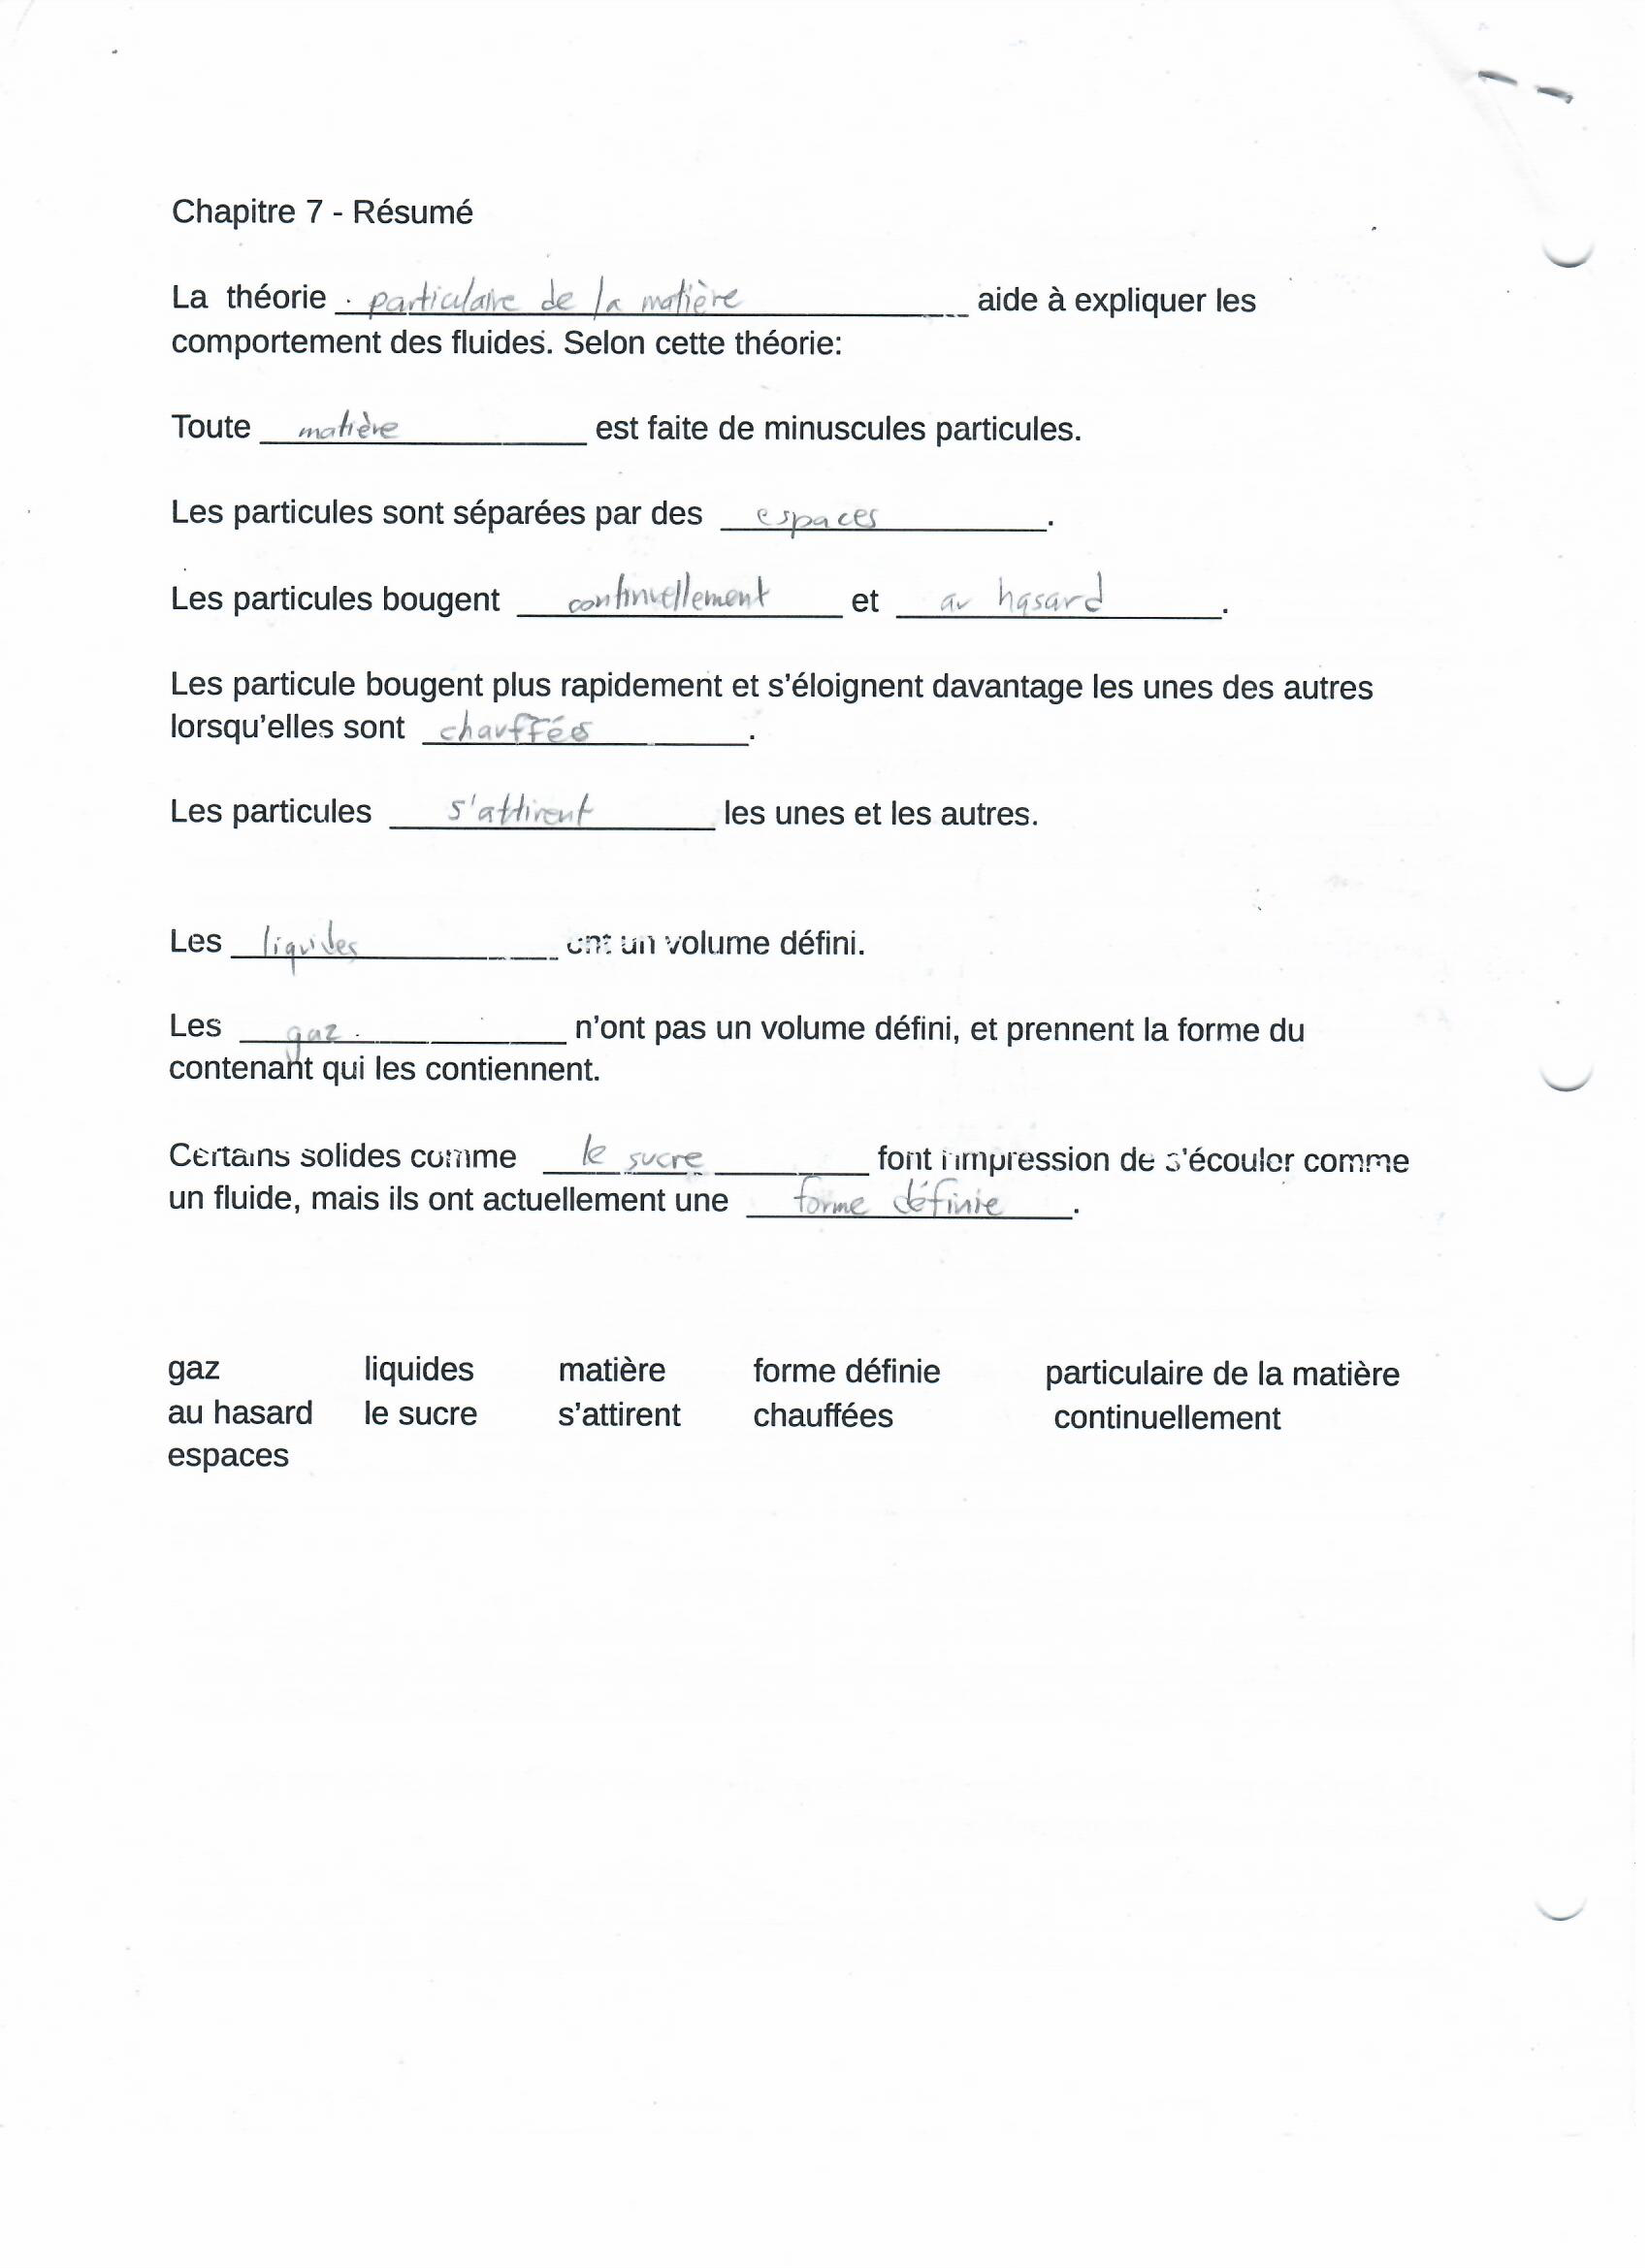 Chapitre 7 - Résumé
La théorie particulaire de la matière aide à expliquer les
comportement des fluides. Selon cette théorie:
Toute matière est faite de minuscules particules.
Les particules sont séparées par des espaces.
Les particules bougent continuellement et au hasard.
Les particule bougent plus rapidement et s'éloignent davantage les unes des autres
lorsqu'elles sont chauffées.
Les particules s'attirent les unes et les autres.
Les liquides ont un volume défini.
Les gaz n'ont pas un volume défini, et prennent la forme du
contenant qui les contiennent.
Certains solides comme le sucre font l'impression de s'écouler comme
un fluide, mais ils ont actuellement une forme définie.
gaz liquides matière forme définie particulaire de la matière
au hasard le sucre s'attirent chauffées continuellement
espaces